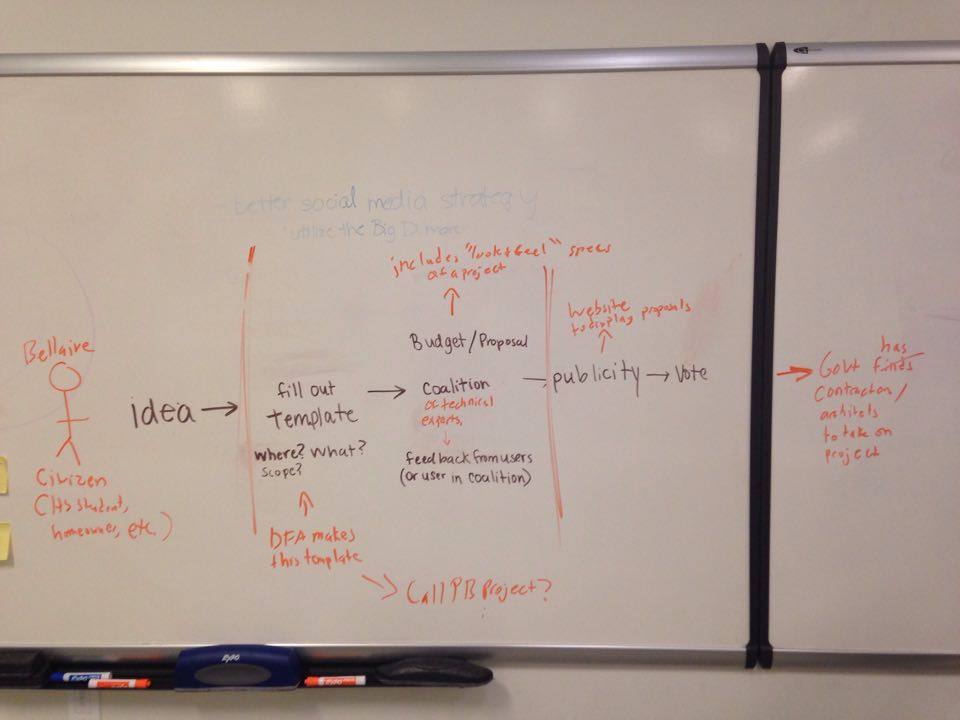 better social media strategy
utilize the Big D more
includes "look & feel" specs
of a project
Website
to display proposals
Budget/Proposal
Bellaire
idea →
fill out
template
where? what?
scope?
→ Coalition
of technical
experts,
feedback from users
(or user in coalition)
— publicity → vote
has
→ Govt finds
contractors/
architets
to take on
project
Citizen
(HS student,
homeowner, etc.)
DFA makes
this template
Call PB Project?
EXPO